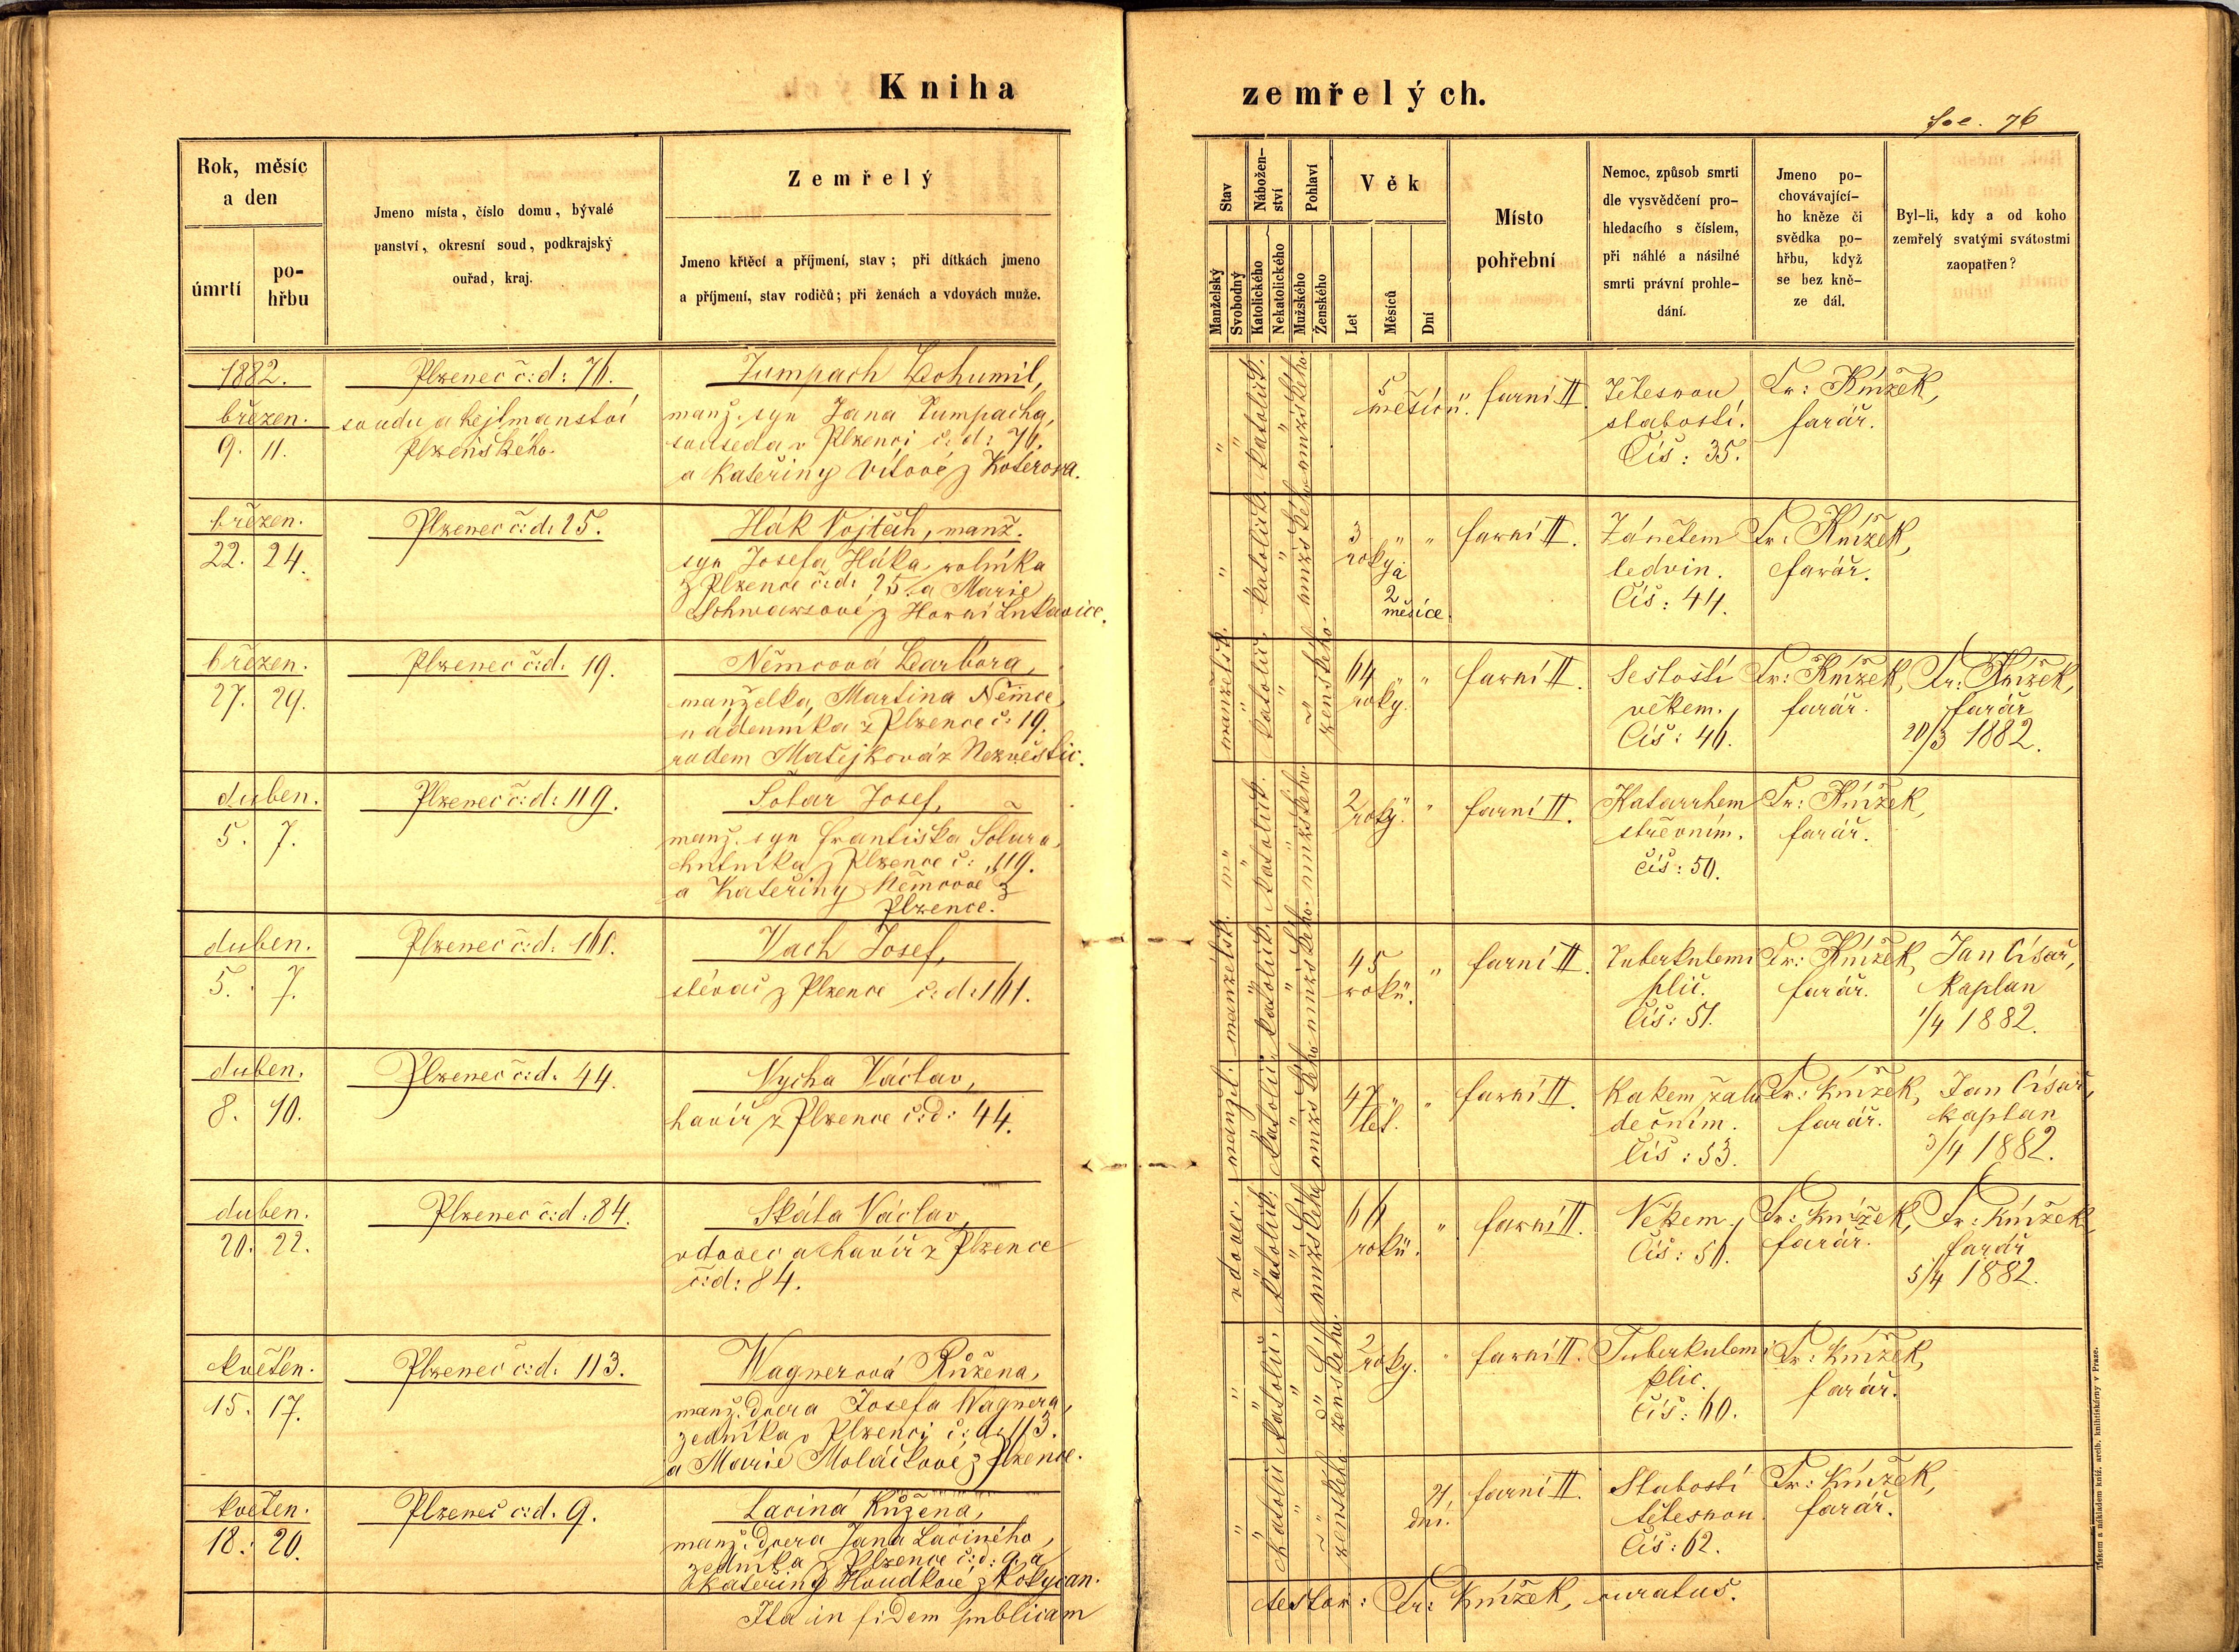 Kniha
zemřelých.
fol. 76
Rok, měsíc
a den
úmrtí
po-
hřbu
Jmeno místa, číslo domu, bývalé
panství, okresní soud, podkrajský
ouřad, kraj.
Zemřelý
Jmeno křtěcí a příjmení, stav; při dítkách jmeno
a příjmení, stav rodičů; při ženách a vdovách muže.
Stav
Manželský
Svobodný
Nábožen-
ství
Katolického
Nekatolického
Pohlaví
Mužského
Ženského
Věk
Let
Měsíců
Dní
Místo
pohřební
Nemoc, způsob smrti
dle vysvědčení pro-
hledacího s číslem,
při náhlé a násilné
smrti právní prohle-
dání.
Jmeno po-
chovávající-
ho kněze či
svědka po-
hřbu, když
se bez kně-
ze dál.
Byl-li, kdy a od koho
zemřelý svatými svátostmi
zaopatřen?
1882.
březen.
9. 11.
Plzenec č:d: 76.
soudu a hejtmanství
Plzeňského.
Tumpach Bohumil,
manž. syn Jana Tumpacha,
souseda v Plzenci č. d: 76.
a Kateřiny Vítové z Koterova.
katolick.
mužského.
5
měsíců.
farní II.
Tělesnou
slabostí.
Čís: 35.
Fr: Knížek,
farář.
březen.
22. 24.
Plzenec č:d: 25.
Hák Vojtěch, manž.
syn Josefa Háka, rolníka
z Plzence č:d: 25. a Marie
Schwarzové z Horní Lukavice.
katolick.
mužského
3
roky a
2
měsíce.
farní II.
Zánětem
ledvin.
Čís: 44.
Fr: Knížek,
farář.
březen.
27. 29.
Plzenec č:d. 19.
Němcová Barbora,
manželka Martina Němce,
nádenníka z Plzence č: 19.
rodem Matějková z Nezvěstic.
manželsk.
katolic.
ženského.
64
roky.
farní II.
Sešlostí
věkem.
Čís: 46.
Fr: Knížek,
farář.
Fr: Knížek,
farář
20/3 1882.
duben.
5. 7.
Plzenec č:d: 119.
Šolar Josef,
manž. syn Františka Šolara
hutníka z Plzence č: 119.
a Kateřiny Němcové z
Plzence.
katolick.
mužského.
2
roky.
farní II.
Katarrhem
střevním.
čís: 50.
Fr: Knížek,
farář.
duben.
5. 7.
Plzenec č:d. 161.
Vach Josef,
slévač z Plzence č: d: 161.
manželsk.
katolick.
mužského.
45
roků.
farní II.
Tuberkulemi
plic.
Čís: 51.
Fr: Knížek,
farář.
Jan Císař,
kaplan
1/4 1882.
duben.
8. 10.
Plzenec č:d. 44.
Vycha Václav,
havíř z Plzence č:d: 44.
manžel.
katolic.
mužského
47
let.
farní II.
Rakem žalu
dečním.
Čís: 53.
Fr: Knížek,
farář.
Jan Císař,
kaplan
3/4 1882.
duben.
20. 22.
Plzenec č:d: 84.
Skála Václav,
vdovec a havíř z Plzence
č:d: 84.
vdovec.
katolick.
mužského
66
roků.
farní II.
Věkem.
Čís: 56.
Fr: Knížek,
farář.
Fr: Knížek
farář
5/4 1882.
květen.
15. 17.
Plzenec č:d: 113.
Wagnerová Růžena,
manž. dcera Josefa Wagnera,
zedníka v Plzenci č: d: 113.
a Marie Moláčkové z Plzence.
katolic.
ženského.
2
roky.
farní II.
Tuberkulemi
plic.
Čís: 60.
Fr: Knížek,
farář.
květen.
18. 20.
Plzenec č:d. 9.
Laciná Růžena,
manž. dcera Jana Laciného,
zedníka z Plzence č:d: 9. a
Kateřiny Houdkové z Rokycan.
katolic
ženského.
21
dní.
farní II.
Slabostí
tělesnou.
Čís: 62.
Fr: Knížek,
farář.
Ita in fidem publicam
testor: Fr: Knížek, curatus.
Tiskem a nákladem kníž. arcib. knihtiskárny v Praze.